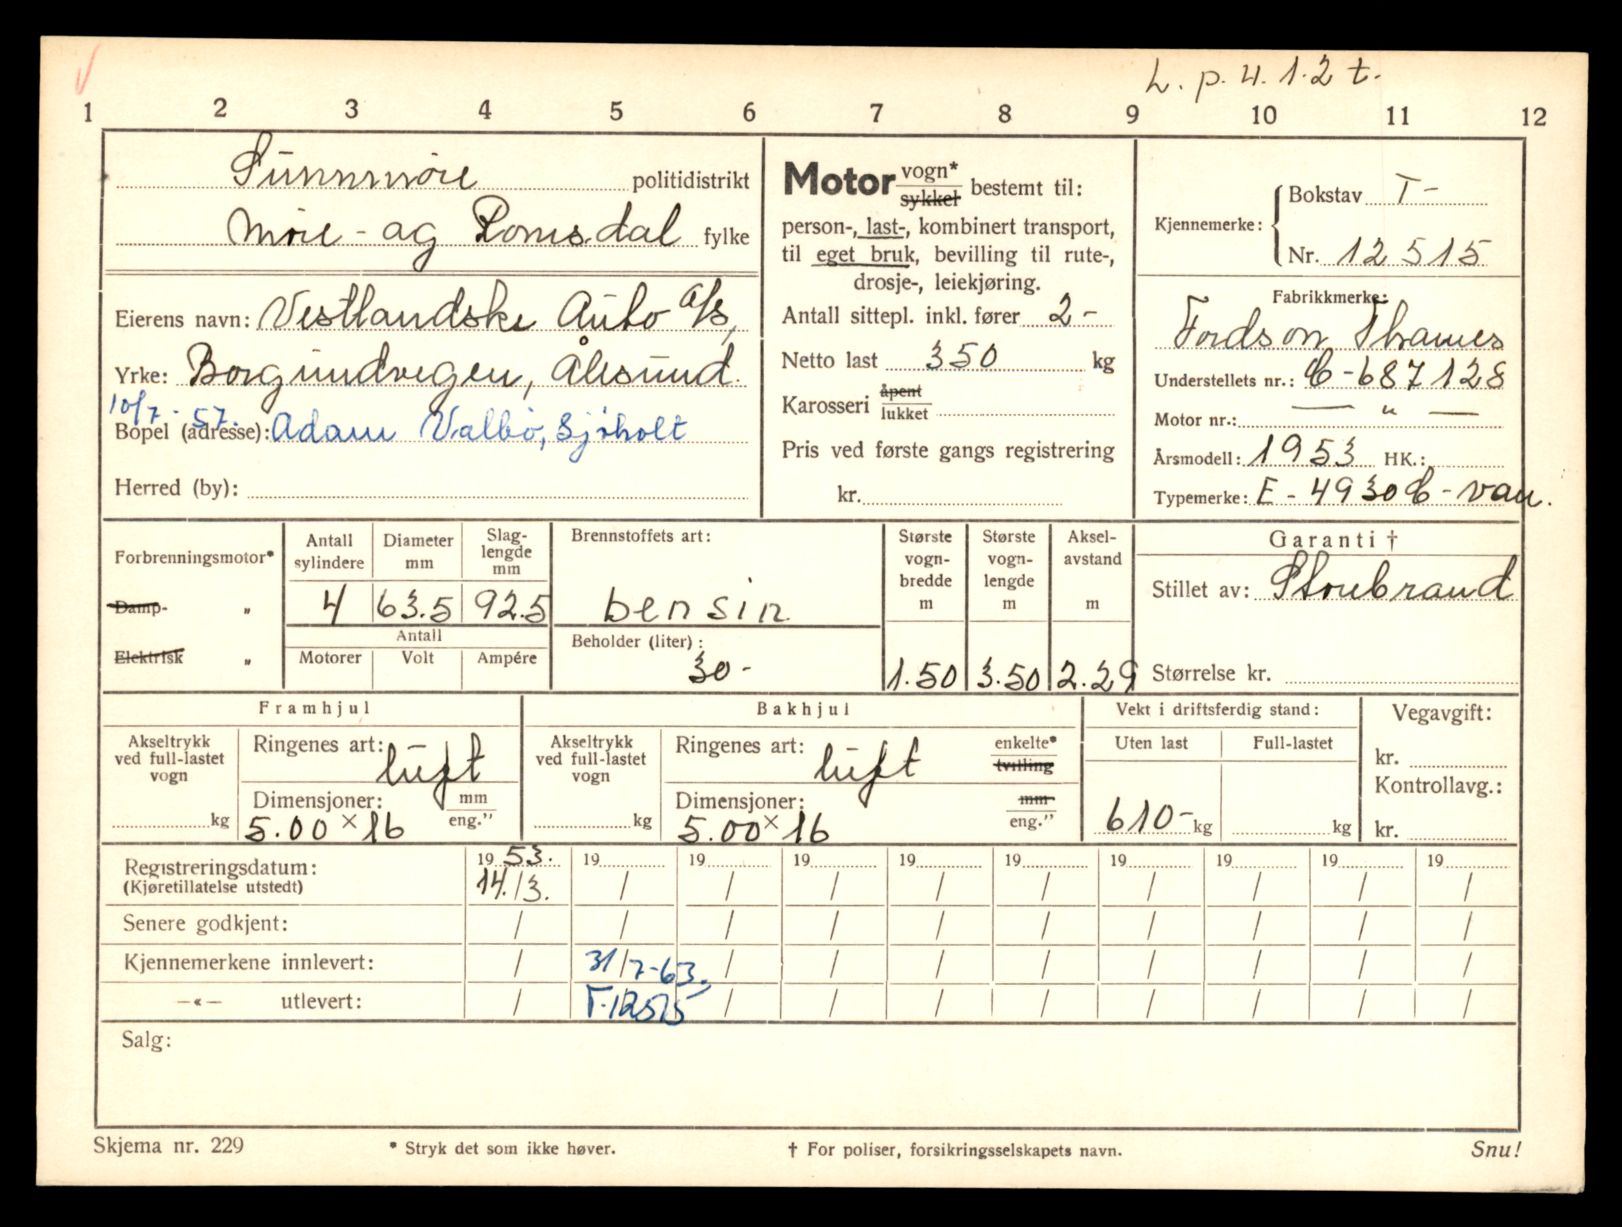 L. p. 4. 1. 2 t.
1 2 3 4 5 6 7 8 9 10 11 12
Sunnmøre politidistrikt
Møre - og Romsdal fylke
Eierens navn: Vestlandske Auto A/S,
Yrke: Borgundvegen, Ålesund.
10/7 - 57.
Bopel (adresse): Adam Valbø, Sjøholt
Herred (by):
Motor vogn* sykkel bestemt til:
person-, last-, kombinert transport,
til eget bruk, bevilling til rute-,
drosje-, leiekjøring.
Antall sittepl. inkl. fører 2 -
Netto last 350 kg
Karosseri åpent lukket
Pris ved første gangs registrering
kr.
Kjennemerke: Bokstav T-
Nr. 12515
Fabrikkmerke:
Fordson Thames
Understellets nr.: C-687128
Motor nr.: — " —
Årsmodell: 1953 HK.:
Typemerke: E - 4930 C - van.
Forbrenningsmotor*
Damp- "
Elektrisk "
Antall sylindere Diameter mm Slag-lengde mm
4 63.5 92.5
Antall
Motorer Volt Ampére
Brennstoffets art:
bensin
Beholder (liter):
30-
Største vogn-bredde m Største vogn-lengde m Aksel-avstand m
1.50 3.50 2.29
Garanti †
Stillet av: Storebrand
Størrelse kr.
Framhjul
Akseltrykk ved full-lastet vogn
kg
Ringenes art: luft
Dimensjoner: mm eng."
5.00 x 16
Bakhjul
Akseltrykk ved full-lastet vogn
kg
Ringenes art: luft enkelte* tvilling
Dimensjoner: mm eng."
5.00 x 16
Vekt i driftsferdig stand:
Uten last Full-lastet
610- kg kg
Vegavgift:
kr.
Kontrollavg.:
kr.
Registreringsdatum: 19 53. 19 19 19 19 19 19 19 19 19
(Kjøretillatelse utstedt) 14./3. / / / / / / / / /
Senere godkjent: / / / / / / / / / /
Kjennemerkene innlevert: / 31/7-63. / / / / / / / /
—«— utlevert: / T-12515 / / / / / / / /
Salg:
Skjema nr. 229 * Stryk det som ikke høver. † For poliser, forsikringsselskapets navn. Snu!